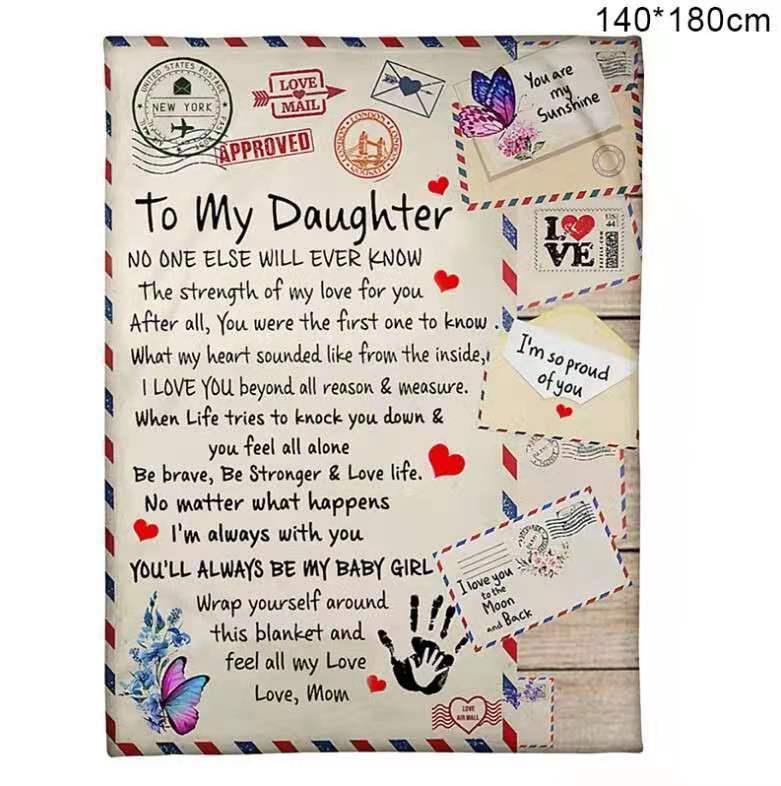 140*180cm
UNITED STATES POSTAGE
NEW YORK
LOVE
MAIL
APPROVED
LONDON
LONDON
You are
my
Sunshine
To My Daughter
NO ONE ELSE WILL EVER KNOW
The strength of my love for you
After all, You were the first one to know .
What my heart sounded like from the inside,
I LOVE YOU beyond all reason & measure.
When Life tries to knock you down &
you feel all alone
Be brave, Be Stronger & Love life.
No matter what happens
I'm always with you
YOU'LL ALWAYS BE MY BABY GIRL
Wrap yourself around
this blanket and
feel all my Love
Love, Mom
LOVE
44
I'm so proud
of you
I love you
to the
Moon
and Back
LOVE
AIR MAIL